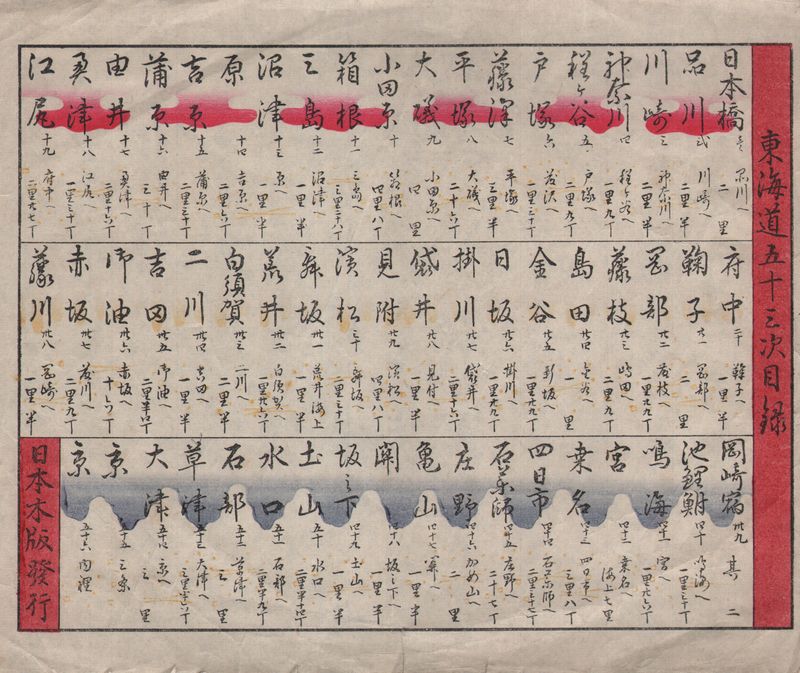 東海道五十三次目録
日本橋 壱 品川へ 二里
品川 弐 川崎へ 二里半
川崎 三 神奈川へ 二里半
神奈川 四 程ヶ谷へ 一里九丁
程ヶ谷 五 戸塚へ 二里九丁
戸塚 六 藤沢へ 二里
藤澤 七 平塚へ 三里半
平塚 八 大磯へ 二十六丁
大磯 九 小田原へ 四里
小田原 十 箱根へ 四里八丁
箱根 十一 三島へ 三里二十八丁
三島 十二 沼津へ 一里半
沼津 十三 原へ 一里半
原 十四 吉原へ 三里六丁
吉原 十五 蒲原へ 二里三十丁
蒲原 十六 由井へ 三十丁
由井 十七 奥津へ 二里十二丁
奥津 十八 江尻へ 一里三丁
江尻 十九 府中へ 二里廿七丁
府中 二十 鞠子へ 一里半
鞠子 廿一 岡部へ 二里
岡部 廿二 藤枝へ 一里廿九丁
藤枝 廿三 嶋田へ 二里九丁
島田 廿四 金谷へ 一里
金谷 廿五 新坂へ 一里廿九丁
日坂 廿六 掛川へ 一里廿九丁
掛川 廿七 袋井へ 二里十六丁
袋井 廿八 見付へ 一里半
見附 廿九 濱松へ 四里八丁
濱松 三十 舞坂へ 二里三十丁
舞坂 卅一 荒井海上 一里半
荒井 卅二 白須賀へ 一里廿六丁
白須賀 卅三 二川へ 二里半
二川 卅四 吉田へ 一里半
吉田 卅五 御油へ 二里半四丁
御油 卅六 赤坂へ 十六丁
赤坂 卅七 藤川へ 二里九丁
藤川 卅八 岡崎へ 一里半
岡崎宿 卅九 其二
池鯉鮒 四十 鳴海へ 二里三十丁
鳴海 四十一 宮へ 一里廿六丁
宮 四十二 桑名へ 海上七里
桑名 四十三 四日市へ 三里八丁
四日市 四十四 石薬師へ 二里三十七丁
石薬師 四十五 庄野へ 二十七丁
庄野 四十六 かめ山へ 二里
亀山 四十七 関へ 一里半
関 四十八 坂之下へ 一里半
坂之下 四十九 土山へ 一里半
土山 五十 水口へ 二里半四丁
水口 五十一 石部へ 三里半九丁
石部 五十二 草津へ 三里
草津 五十三 大津へ 三里半六丁
大津 五十四 京へ 三里
京 五十五 三条
京 五十六 内裡
日本木版發行